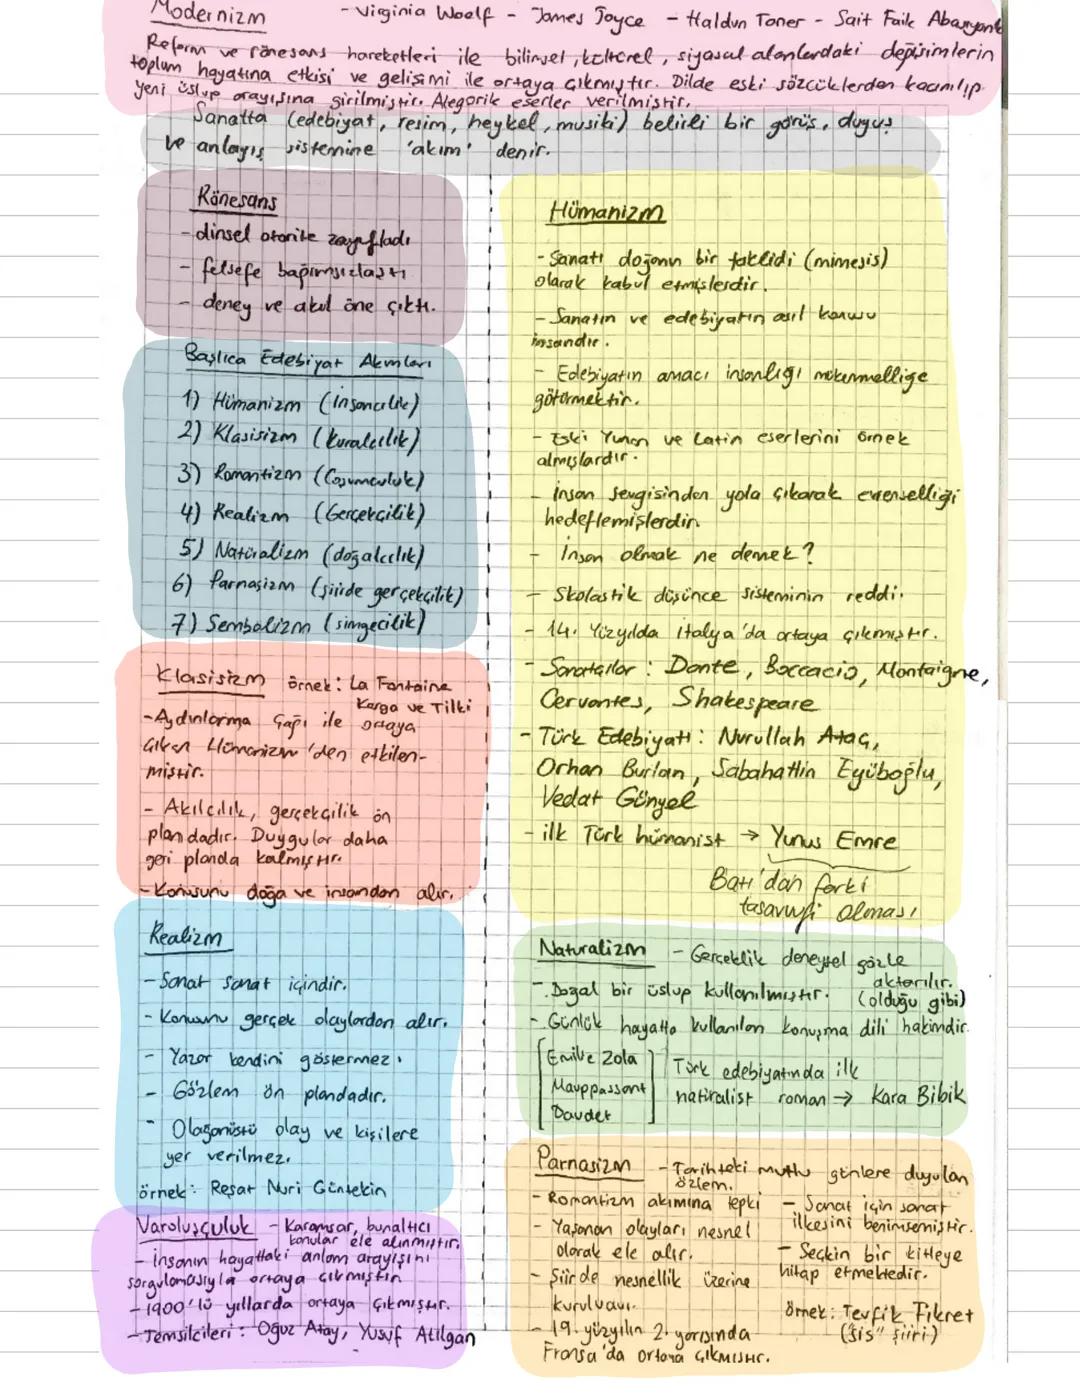 Modernizm - Virginia Woolf - James Joyce - Haldun Taner - Sait Faik Abasıyanık
Reform ve rönesans hareketleri ile bilimsel, kültürel, siyasal alanlardaki değişimlerin
toplum hayatına etkisi ve gelişimi ile ortaya çıkmıştır. Dilde eski sözcüklerden kaçınılıp
yeni üslup arayışına girilmiştir. Alegorik eserler verilmiştir.
Sanatta (edebiyat, resim, heykel, musiki) belirli bir görüş, duyuş
ve anlayış sistemine 'akım' denir.
Rönesans
- dinsel otorite zayıfladı
- felsefe bağımsızlaştı
- deney ve akıl öne çıktı.
Başlıca Edebiyat Akımları
1) Hümanizm (insancılık)
2) Klasisizm (kuralcılık)
3) Romantizm (Coşumculuk)
4) Realizm (Gerçekçilik)
5) Natüralizm (doğalcılık)
6) Parnasizm (şiirde gerçekçilik)
7) Sembolizm (simgecilik)
Klasisizm örnek: La Fontaine
Karga ve Tilki
- Aydınlanma Çağı ile ortaya
çıkan Hümanizm'den etkilen-
miştir.
- Akılcılık, gerçekçilik ön
plandadır. Duygular daha
geri planda kalmıştır.
- Konusunu doğa ve insandan alır.
Realizm
- Sanat sanat içindir.
- Konusunu gerçek olaylardan alır.
- Yazar kendini göstermez.
- Gözlem ön plandadır.
- Olağanüstü olay ve kişilere
yer verilmez.
örnek: Reşat Nuri Güntekin
Varoluşçuluk - Karamsar, bunaltıcı
konular ele alınmıştır.
- İnsanın hayattaki anlam arayışını
sorgulamasıyla ortaya çıkmıştır.
- 1900'lü yıllarda ortaya çıkmıştır.
- Temsilcileri: Oğuz Atay, Yusuf Atılgan
Hümanizm
- Sanatı doğanın bir taklidi (mimesis)
olarak kabul etmişlerdir.
- Sanatın ve edebiyatın asıl konusu
insandır.
- Edebiyatın amacı insanlığı mükemmelliğe
götürmektir.
- Eski Yunan ve Latin eserlerini örnek
almışlardır.
- İnsan sevgisinden yola çıkarak evrenselliği
hedeflemişlerdir.
- İnsan olmak ne demek?
- Skolastik düşünce sisteminin reddi.
- 14. Yüzyılda italya'da ortaya çıkmıştır.
- Sanatçılar: Dante, Boccacio, Montaigne,
Cervantes, Shakespeare
- Türk Edebiyatı: Nurullah Ataç,
Orhan Burian, Sabahattin Eyüboğlu,
Vedat Günyol
- ilk Türk hümanist → Yunus Emre
Batı'dan farkı
tasavvufi olması
Naturalizm - Gerçeklik deneysel gözle
aktarılır.
(olduğu gibi)
- Doğal bir üslup kullanılmıştır.
- Günlük hayatta kullanılan konuşma dili hakimdir.
Emile Zola
Mauppassant
Daudet
Türk edebiyatında ilk
natüralist roman → Kara Bibik
Parnasizm - Tarihteki mutlu günlere duyulan
özlem.
- Romantizm akımına tepki
- Yaşanan olayları nesnel
olarak ele alır.
- Şiirde nesnellik üzerine
kurulu
- 19. yüzyılın 2. yarısında
Fransa'da ortaya çıkmıştır.
- Sanat için sanat
ilkesini benimsemiştir.
- Seçkin bir kitleye
hitap etmektedir.
örnek: Tevfik Fikret
("Sis" şiiri)